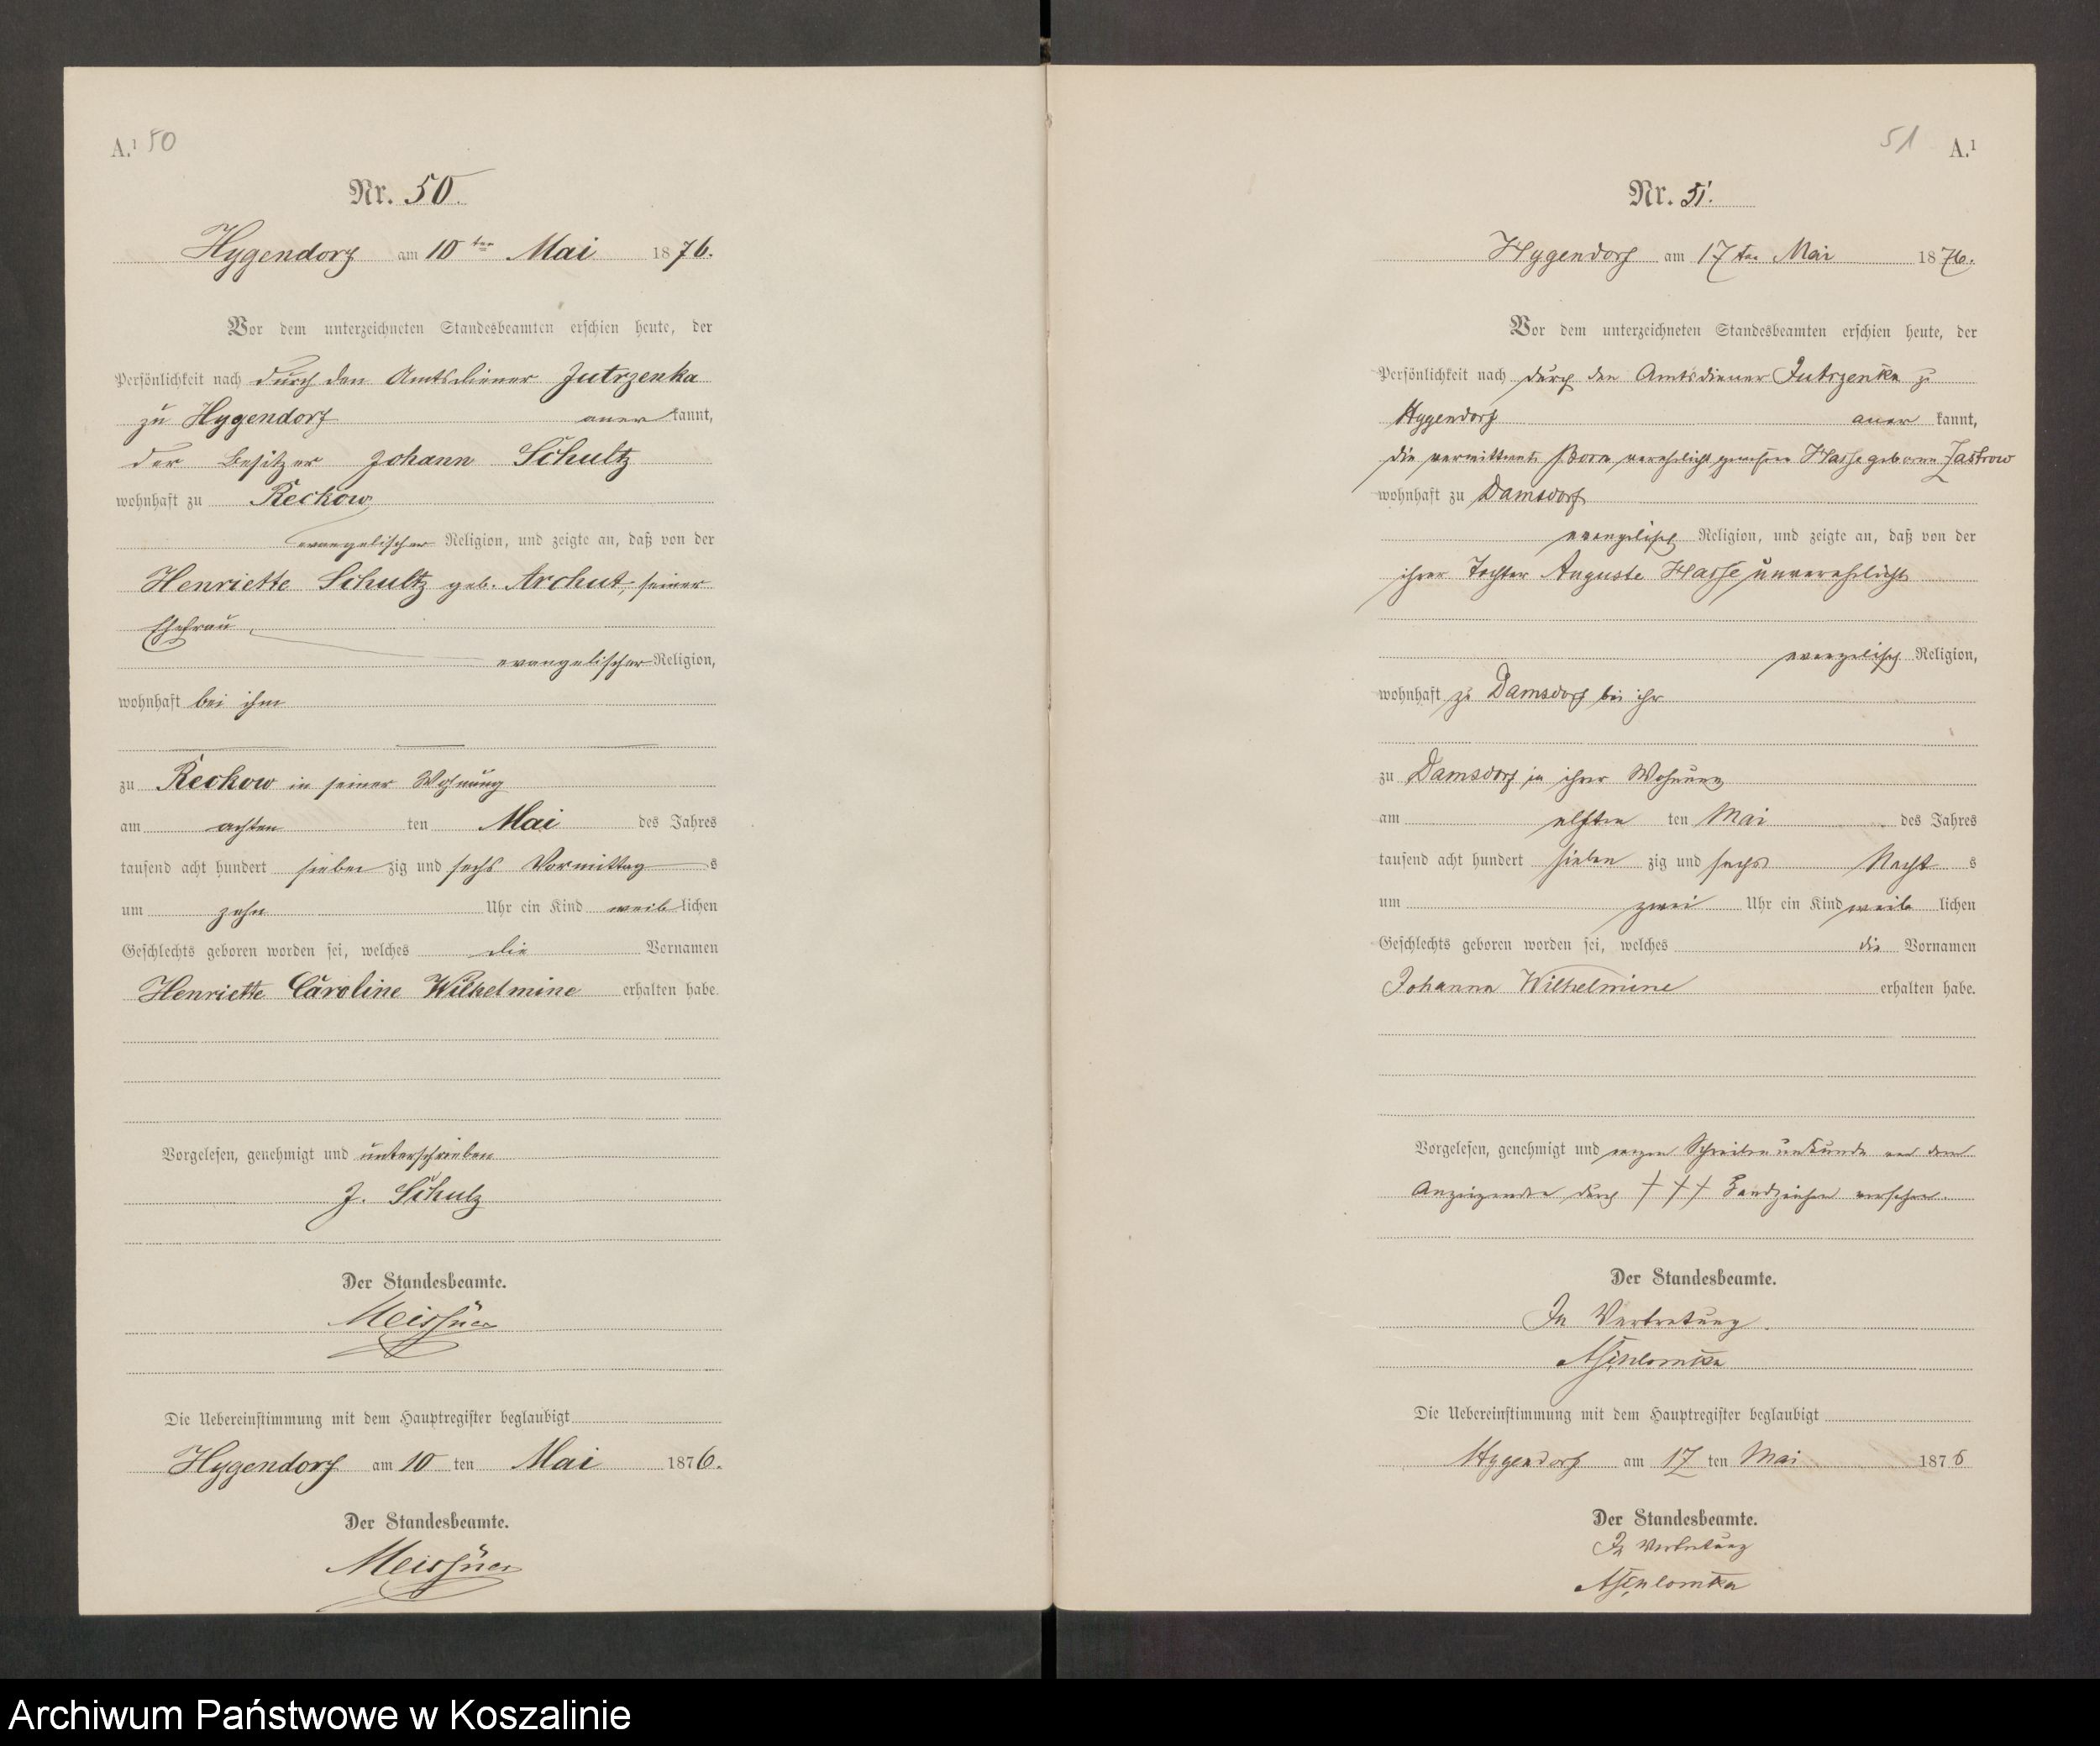 A.¹ 50
Nr. 50.
Hygendorf am 10ten Mai 1876.
Vor dem unterzeichneten Standesbeamten erschien heute, der
Persönlichkeit nach durch den Amtsdiener Jutrzenka
zu Hygendorf anerkannt,
der Besitzer Johann Schultz
wohnhaft zu Reckow
evangelischer Religion, und zeigte an, daß von der
Henriette Schultz geb. Archut, seiner
Ehefrau
evangelischer Religion,
wohnhaft bei ihm
zu Reckow in seiner Wohnung
am achten ten Mai des Jahres
tausend acht hundert siebenzig und sechs Vormittags
um zehn Uhr ein Kind weiblichen
Geschlechts geboren worden sei, welches die Vornamen
Henriette Caroline Wilhelmine erhalten habe.
Vorgelesen, genehmigt und unterschrieben
J. Schulz
Der Standesbeamte.
Meissner
Die Uebereinstimmung mit dem Hauptregister beglaubigt
Hygendorf am 10 ten Mai 1876.
Der Standesbeamte.
Meissner
51 A.¹
Nr. 51.
Hygendorf am 17ten Mai 1876.
Vor dem unterzeichneten Standesbeamten erschien heute, der
Persönlichkeit nach durch den Amtsdiener Jutrzenka zu
Hygendorf anerkannt,
die verwittwete Born verehelicht gewesene Hasse geborne Jastrow
wohnhaft zu Damsdorf
evangelisch Religion, und zeigte an, daß von der
ihrer Tochter Auguste Hasse unverehelicht
evangelisch Religion,
wohnhaft zu Damsdorf bei ihr
zu Damsdorf in ihrer Wohnung
am elften ten Mai des Jahres
tausend acht hundert siebenzig und sechs Nachts
um zwei Uhr ein Kind weiblichen
Geschlechts geboren worden sei, welches die Vornamen
Johanna Wilhelmine erhalten habe.
Vorgelesen, genehmigt und wegen Schreibensunkunde von dem
Anzeigenden durch +++ Handzeichen versehen.
Der Standesbeamte.
In Vertretung.
Die Uebereinstimmung mit dem Hauptregister beglaubigt
Hygendorf am 17 ten Mai 1876
Der Standesbeamte.
In Vertretung
Archiwum Państwowe w Koszalinie